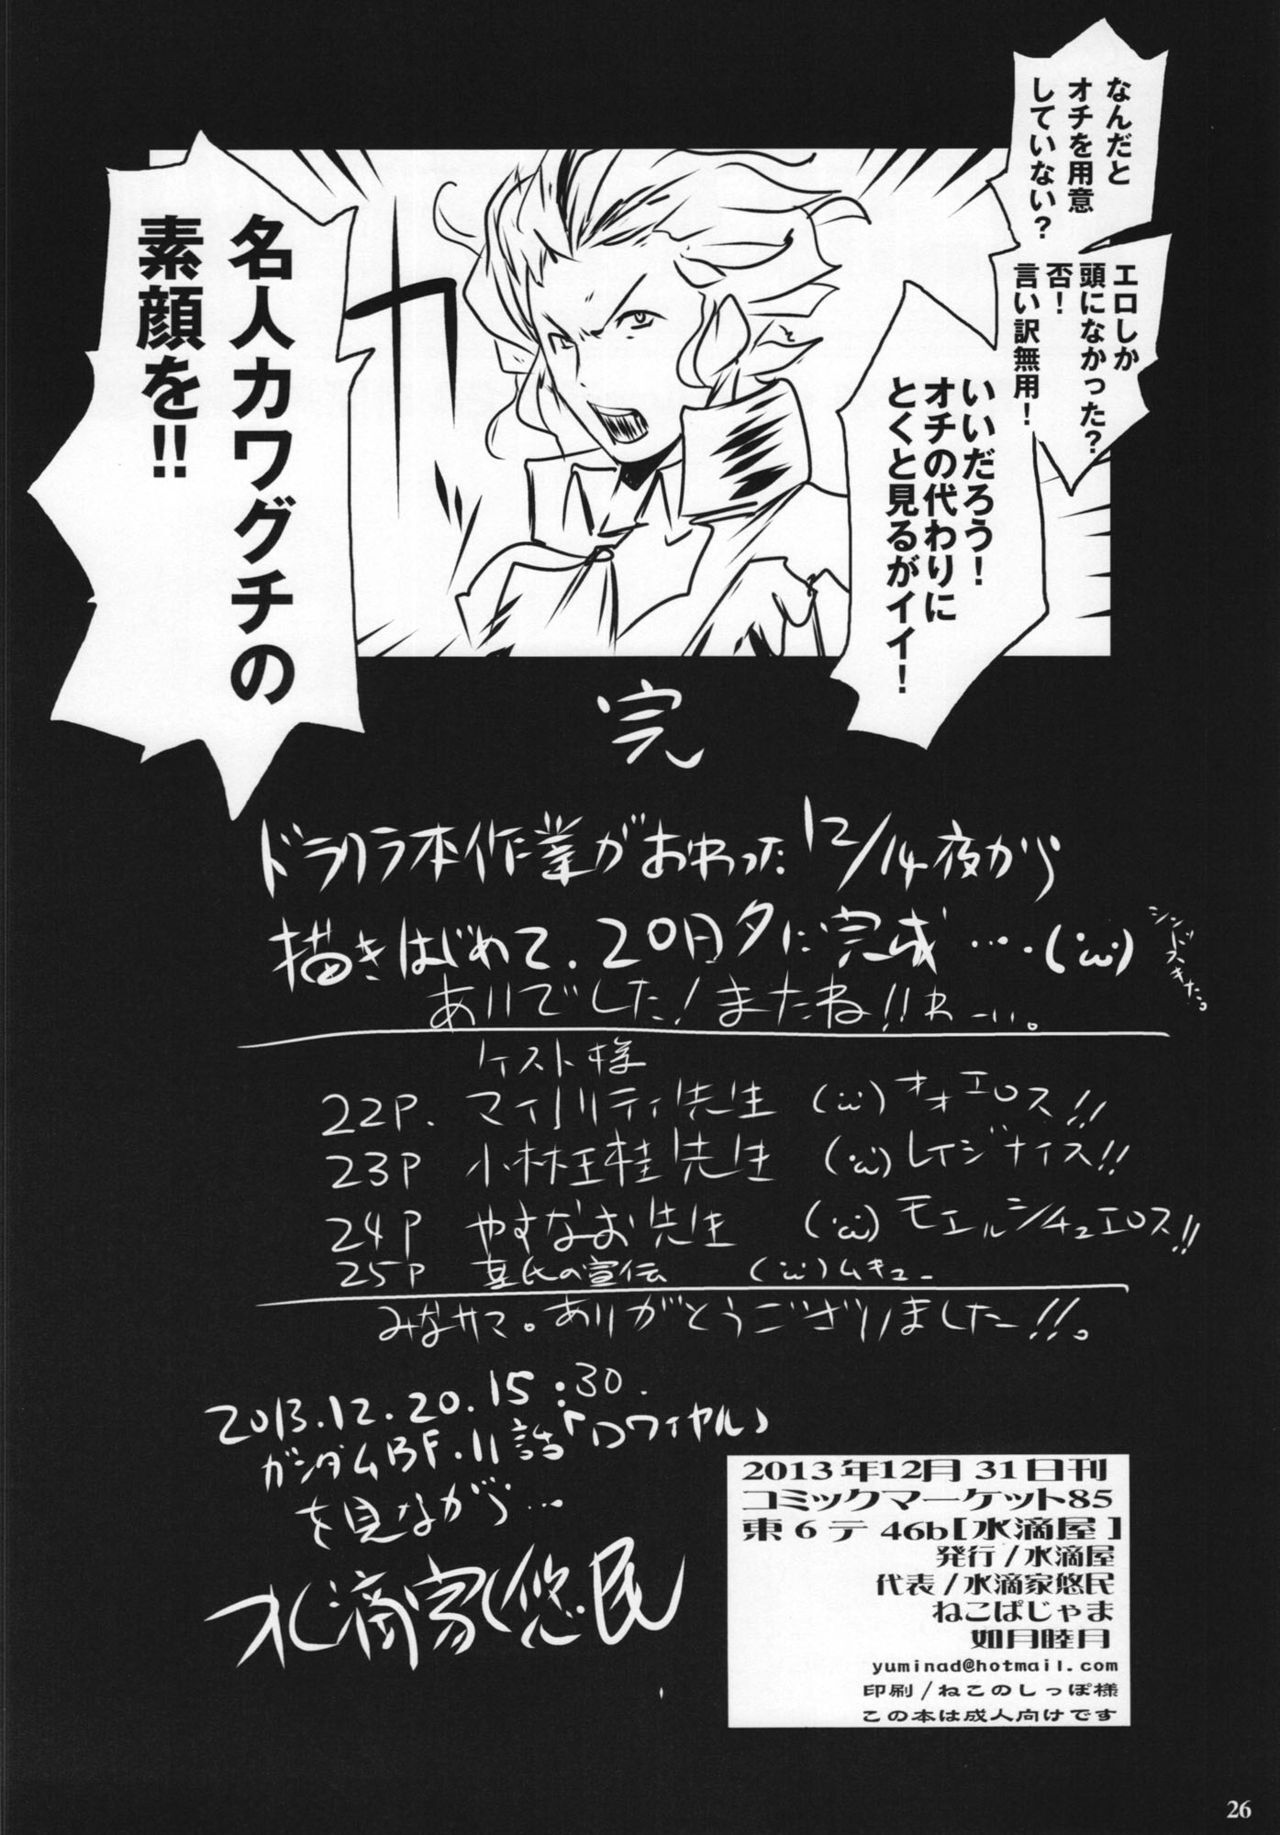 なんだと
オチを用意
していない？
エロしか
頭になかった？
否！
言い訳無用！
いいだろう！
オチの代わりに
とくと見るがイイ！
カッ
名人カワグチの
素顔を!!
完
ドラクラ本作業がおわった12/14夜から
描きはじめて、20日夕に完成…‥(´ω`)
シンドスギた。
ありでした！またね!!わーい。
ゲスト様
22P. マイノリティ先生 (´ω`)オオエロス!!
23P 小林王桂先生 (´ω`)レイジナイス!!
24P やすなお先生 (´ω`)モエルシチュエロス!!
25P 豆氏の宣伝 (´ω`)ムキュー
みなサマ。ありがとうございました!!。
2013.12.20.15:30.
ガンダムBF.11話「ロワイヤル」
を見ながら…
水滴家悠民
2013年12月31日刊
コミックマーケット85
東6テ46b[水滴屋]
発行/水滴屋
代表/水滴家悠民
ねこぱじゃま
如月睦月
yuminad@hotmail.com
印刷/ねこのしっぽ様
この本は成人向けです
26